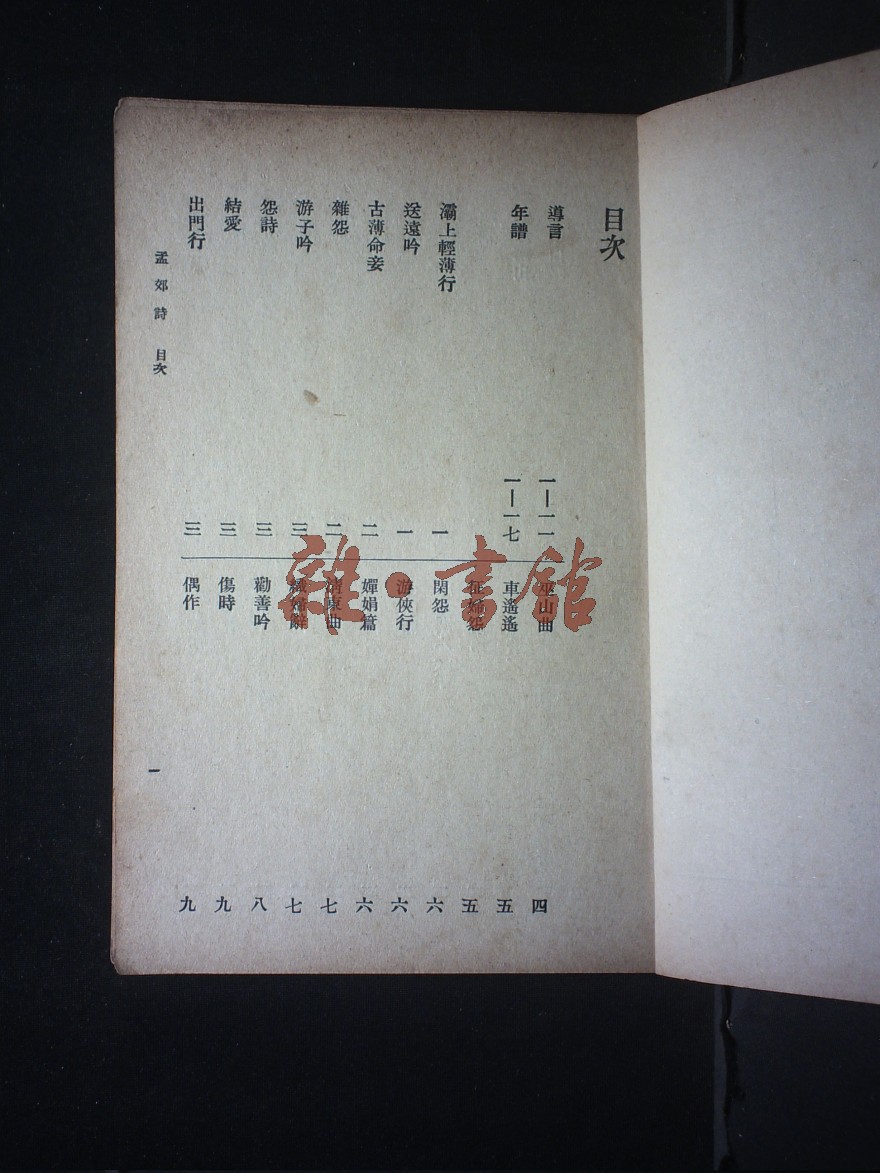 目次
導言 一—一一
年譜 一—一七
灞上輕薄行 一
送遠吟 一
古薄命妾 二
雜怨 二
游子吟 三
怨詩 三
結愛 三
出門行 三
巫山曲 四
車遙遙 五
征婦怨 五
閑怨 六
游俠行 六
嬋娟篇 六
清東曲 七
織婦辭 七
勸善吟 八
傷時 九
偶作 九
孟郊詩 目次
一
雜·書館